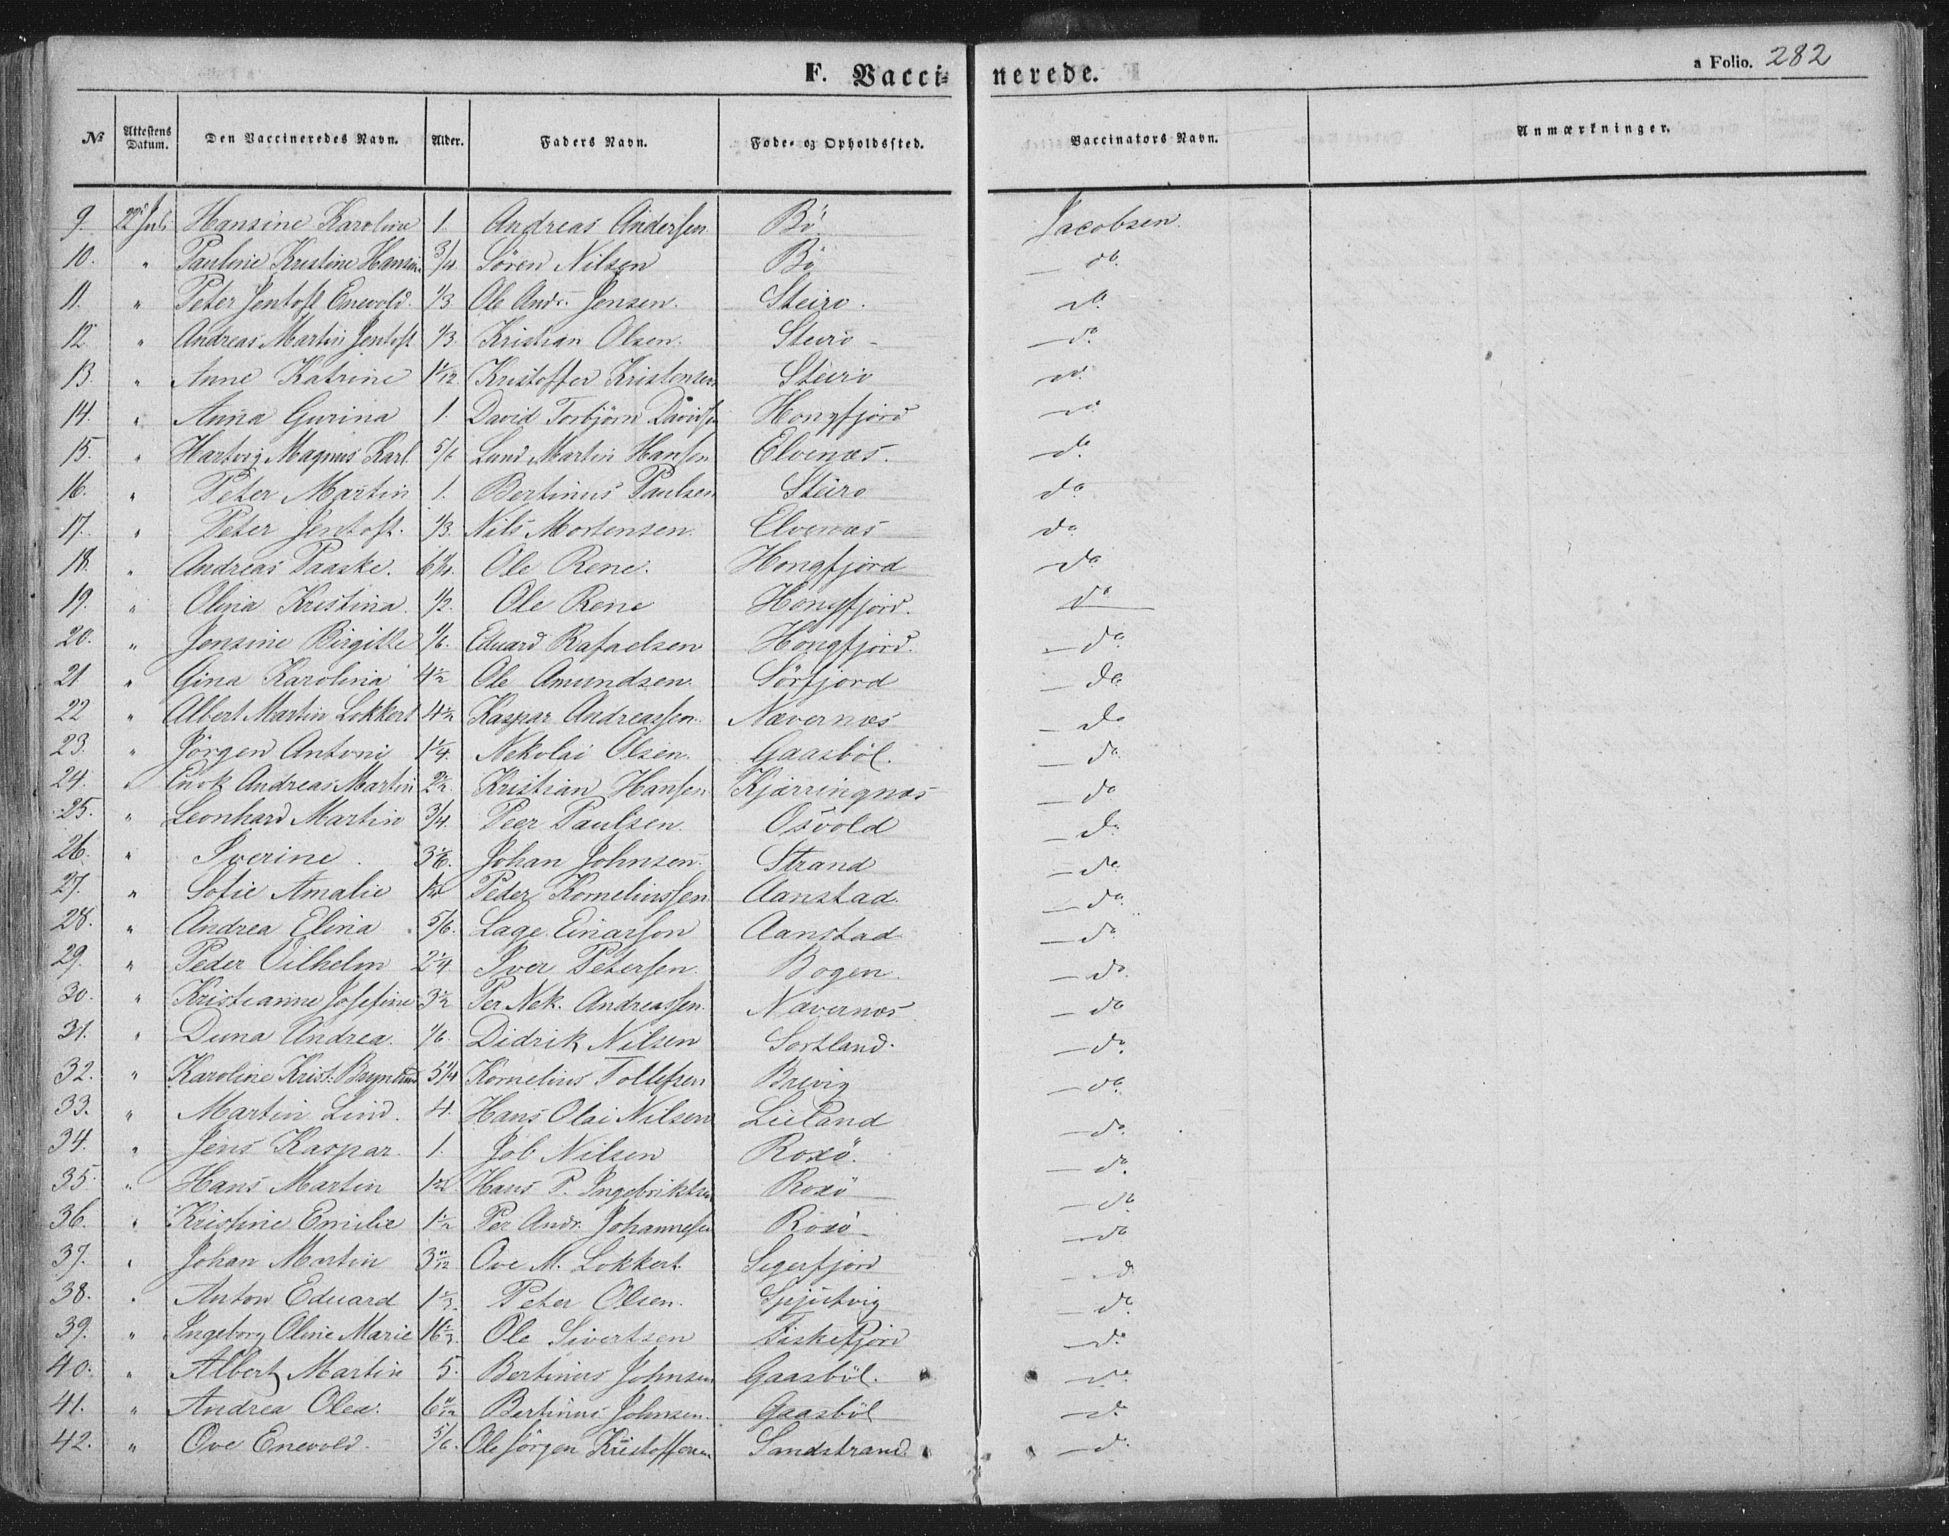 F. Vaccinerede. a Folio. 282
№ Attestens Datum. Den Vaccineredes Navn. Alder. Faders Navn. Føde- og Opholdssted. Vaccinators Navn. Anmærkninger.
9. 22 Juli Hansine Karoline 1. Andreas Andersen Bö Jacobsen.
10. " Pauline Kristine Hansine 3/4 Sören Nilsen Bö do.
11. " Peter Jentoft Enevold. 1/3 Ole Andr. Jensen. Steiro. do.
12 " Andreas Martin Jentoft 1/3. Kristian Olsen. Steiro - do.
13. " Anne Katrine Kristoffer Kristensen Steiro do.
14. " Anna Gurina 1. David Torbjörn Davidsen Hongfjord do.
15. " Hartvig Magnus Karl. 5/6 Lund Martin Hansen Elvenæs. do.
16. " Peter Martin 1. Bertinus Paulsen Steiro do.
17. " Peter Jentoft. 1/3. Nils Mortensen. Elvenæs do.
18. " Andreas Paaske. Ole Rene. Hongfjord do.
19. " Olina Kristina 1/2. Ole Rene Hongfjord. do.
20. " Jensine Birgitte 1/6. Eduard Rafaelsen Hongfjord. do.
21. " Gina Karolina 4 1/2 Ole Amundsen. Sörfjord do.
22 " Albert Martin Lokkert 4 1/2 Kaspar Andreassen. Nævernæs do
23. " Jörgen Antoni 1 1/4. Nekolai Olsen. Gaasböl. do.
24. " Cook Andreas Martin 2 1/2. Kristian Hansen Kjærringnæs do
25. " Leonhard Martin 3/4. Peer Paulsen. Osvold do.
26. " Iverine. 3 1/6. Johan Johnsen. Strand do.
27. " Sofie Amalie Peder Korneliussen Aanstad. do.
28. " Andrea Elina 5/6. Lage Einarson Aanstad do.
29. " Peder Vilhelm 2 1/4. Iver Petersen. Bogen. do.
30. " Kristianne Josefine 3 1/2 Per Nek. Andreassen. Nævernæs do
31. " Duna Andrea. 1/6. Didrik Nilsen Sortland. do.
32. " Karoline Krist. 5 1/4 Kornelius Tollefsen Brevig do.
33. " Martin Lind. 4. Hans Olai Nilsen Leiland do.
34. " Jens Kaspar. 1. Job Nilsen Roxö. do.
35. " Hans Martin Hans P. Ingebriktsen Roxö do.
36. " Kristine Emilie 1 1/2 Per Andr. Johannesen Roxö do
37. " Johan Martin Ove M. Lokkert. Segerfjord do.
38. " Anton Eduard 1 1/3. Peter Olsen. do.
39. " Ingeborg Oline Marie Ole Sivertsen Fiskefjord do.
40. " Albert Martin 5. Bertinus Johnsen Gaasböl. do.
41. " Andrea Olea. Bertinus Johnsen. Gaasböl do.
42. " Ove Enevold. 5/6. Ole Jörgen Kristoffersen Sandstrand. do.